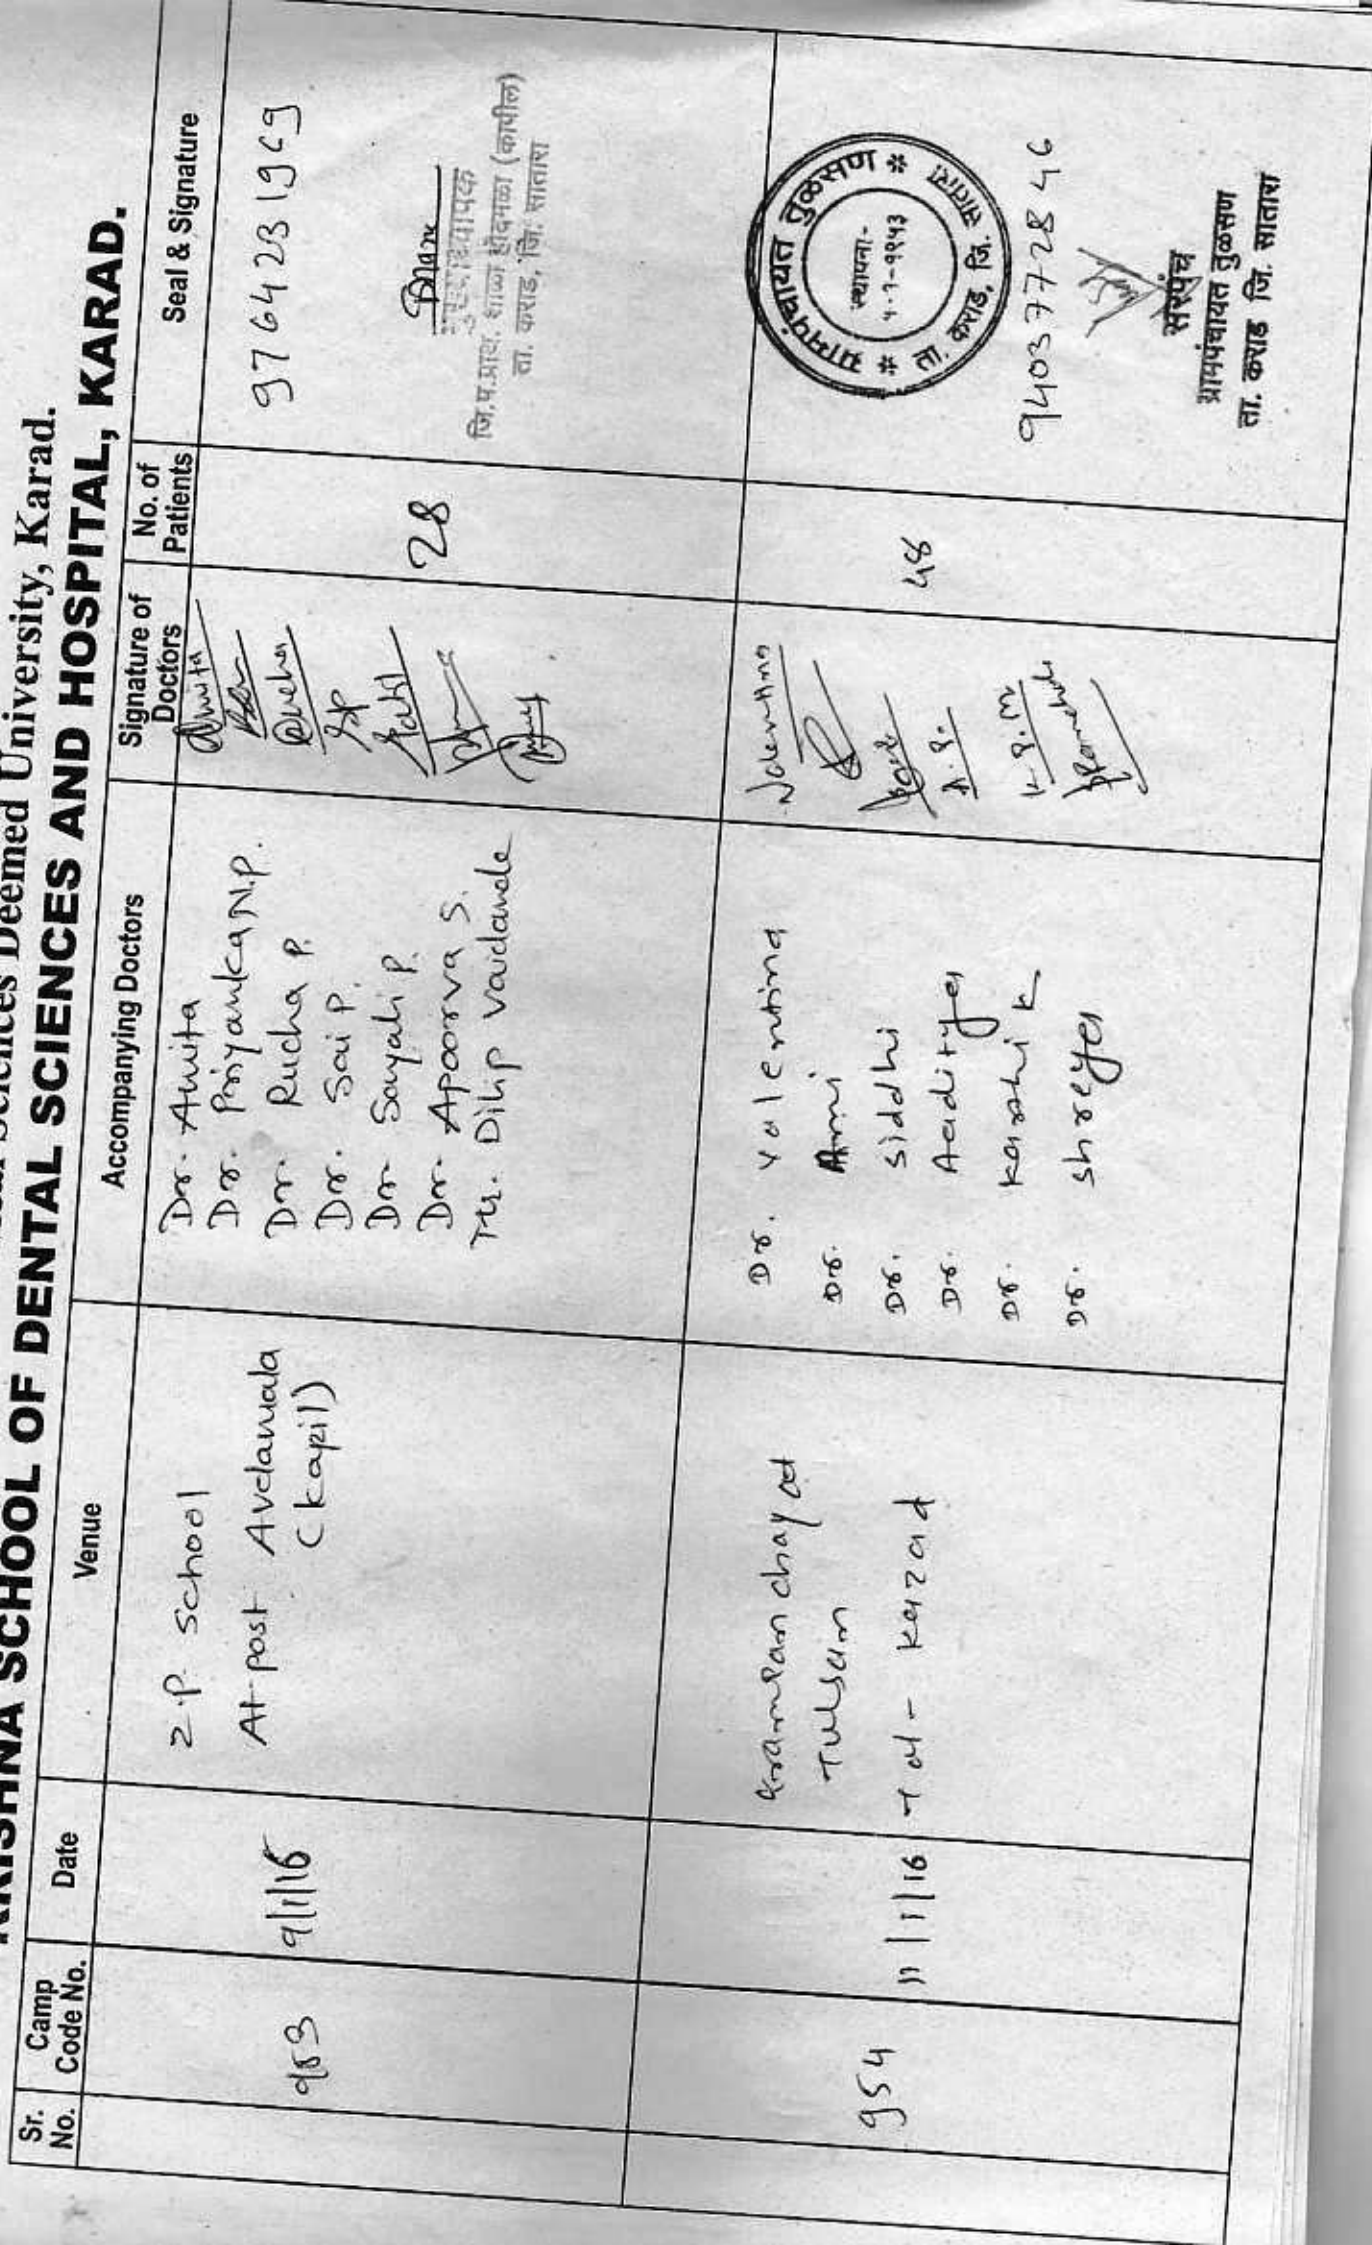 Sciences Deemed University, Karad.
KRISHNA SCHOOL OF DENTAL SCIENCES AND HOSPITAL, KARAD.
Sr. No.
Camp Code No.
Date
Venue
Accompanying Doctors
Signature of Doctors
No. of Patients
Seal & Signature
953
9/1/16
Z.P. School
At post Avdamala
(Kapil)
Dr. Amita
Dr. Priyanka N.P.
Dr. Rucha P.
Dr. Sai P.
Dr Sayali P.
Dr Apoorva S.
Tr. Dilip Vaidande
Amita
28
जि.प.प्राय. शाळा होदमळा (कापील)
ता. कराड, जि. सातारा
954
11/1/16
Grampanchayat
Tulsan
Tal - Karad
Dr. Valentina
Dr. Ami
Dr. Siddhi
Dr. Aaditya
Dr. Karthik K
Dr. Shreya
Valentina
A.S.
K.S.M
48
ग्रामपंचायत तुळसण
ता. कराड, जि. सातारा
स्थापना-
9403772846
सरपंच
ग्रामपंचायत तुळसण
ता. कराड जि. सातारा